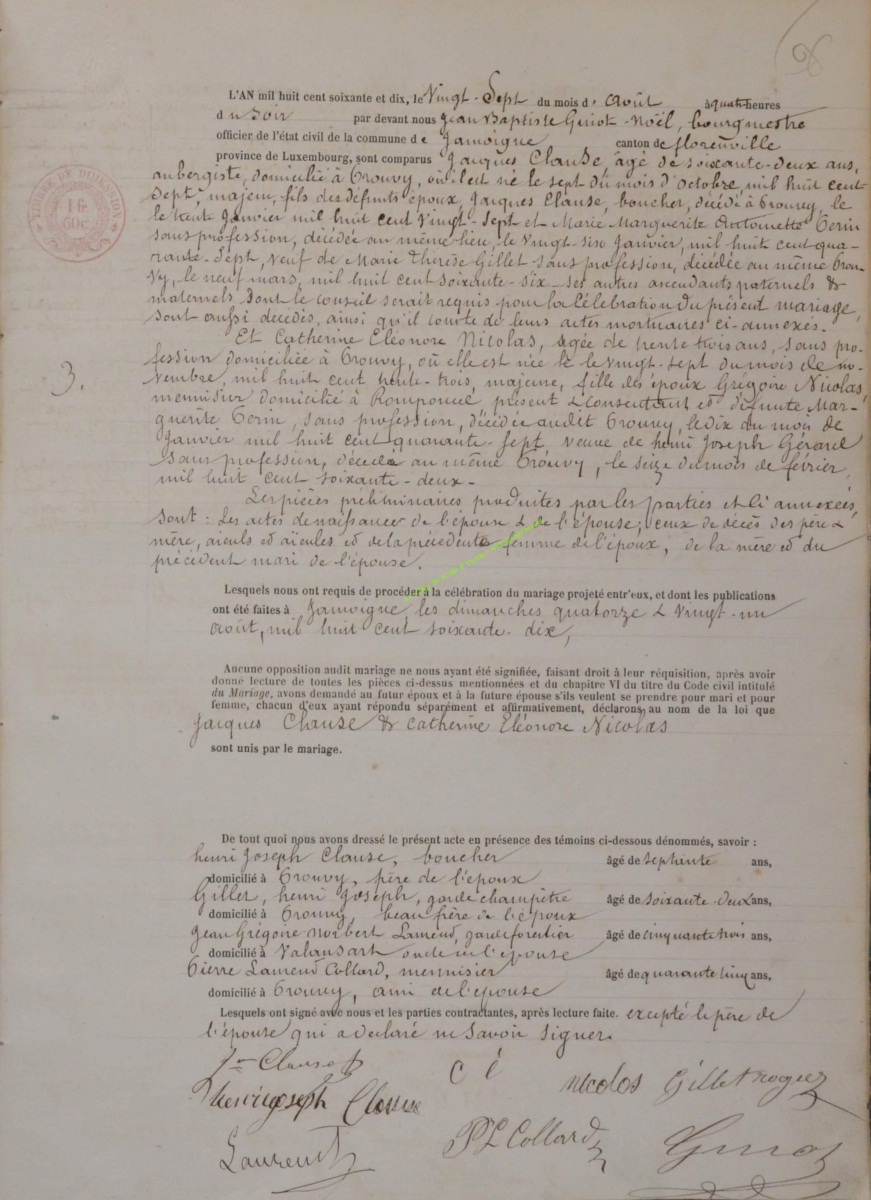 96
L'AN mil huit cent soixante et dix, le Vingt-Sept du mois d' Août à quatre heures
du Soir par devant nous Jean Baptiste Guiot-Noël, bourgmestre
officier de l'état civil de la commune de Jamoigne canton de florenville
province de Luxembourg, sont comparus Jacques Clause, âgé de soixante-deux ans,
aubergiste, domicilié à Prouvy, où il est né le sept du mois d'octobre, mil huit cent
sept, majeur, fils des défunts époux Jacques Clause, boucher, décédé à Prouvy, le
le Janvier mil huit cent vingt-sept et Marie Marguerite Antoinette
sans profession, décédée au même lieu, le vingt six Janvier, mil huit cent qua-
rante-sept, veuf de Marie Thérèse Gillet sans profession, décédée au même Prou-
vy, le neuf mars, mil huit cent soixante-six - ses autres ascendants paternels &
maternels dont le conseil serait requis pour la célébration du présent mariage,
sont aussi décédés, ainsi qu'il conste de leurs actes mortuaires ci-annexés.
Et Catherine Eléonore Nicolas, agée de trente trois ans, sans pro-
fession domiciliée à Prouvy, où elle est née le vingt-sept du mois de no-
3.
vembre, mil huit cent trente-trois, majeure, fille des époux Grégoire Nicolas,
menuisier domicilié à Romponcel présent & consentant et défunte Mar-
guerite sans profession, décédée audit Prouvy, le dix du mois de
Janvier mil huit cent quarante sept veuve de henri Joseph Gérard
sans profession, décédé au même Prouvy, le seize du mois de février,
mil huit cent soixante-deux -
Les pièces préliminaires produites par les parties et ci annexées,
sont : Les actes de naissance de l'époux & de l'épouse; ceux de décès des père &
mère, aieuls et aïeules et de la précédente femme de l'époux, de la mère et du
précédent mari de l'épouse.
Lesquels nous ont requis de procéder à la célébration du mariage projeté entr'eux, et dont les publications
ont été faites à Jamoigne, les dimanches quatorze & vingt-un
août, mil huit cent soixante-dix,
Aucune opposition audit mariage ne nous ayant été signifiée, faisant droit à leur réquisition, après avoir
donné lecture de toutes les pièces ci-dessus mentionnées et du chapitre VI du titre du Code civil intitulé
du Mariage, avons demandé au futur époux et à la future épouse s'ils veulent se prendre pour mari et pour
femme, chacun d'eux ayant répondu séparément et affirmativement, déclarons au nom de la loi que
Jacques Clause & Catherine Eléonore Nicolas
sont unis par le mariage.
De tout quoi nous avons dressé le présent acte en présence des témoins ci-dessous dénommés, savoir :
henri Joseph Clause, boucher âgé de septante ans,
domicilié à Prouvy, frère de l'époux
Gillet, henri Joseph, garde champêtre âgé de soixante deux ans,
domicilié à Prouvy, beau frère de l'époux
Jean Grégoire Norbert Laurend, garde forestier âgé de cinquante trois ans,
domicilié à Valansart oncle de l'épouse
Pierre Laurend Collard, menuisier âgé de quarante cinq ans,
domicilié à Prouvy, ami de l'épouse
Lesquels ont signé avec nous et les parties contractantes, après lecture faite. excepté le père de
l'épouse qui a déclaré ne savoir signer.
Clause C é nicolas Gillet
henri joseph Clause
Laurent PL Collard Guiot